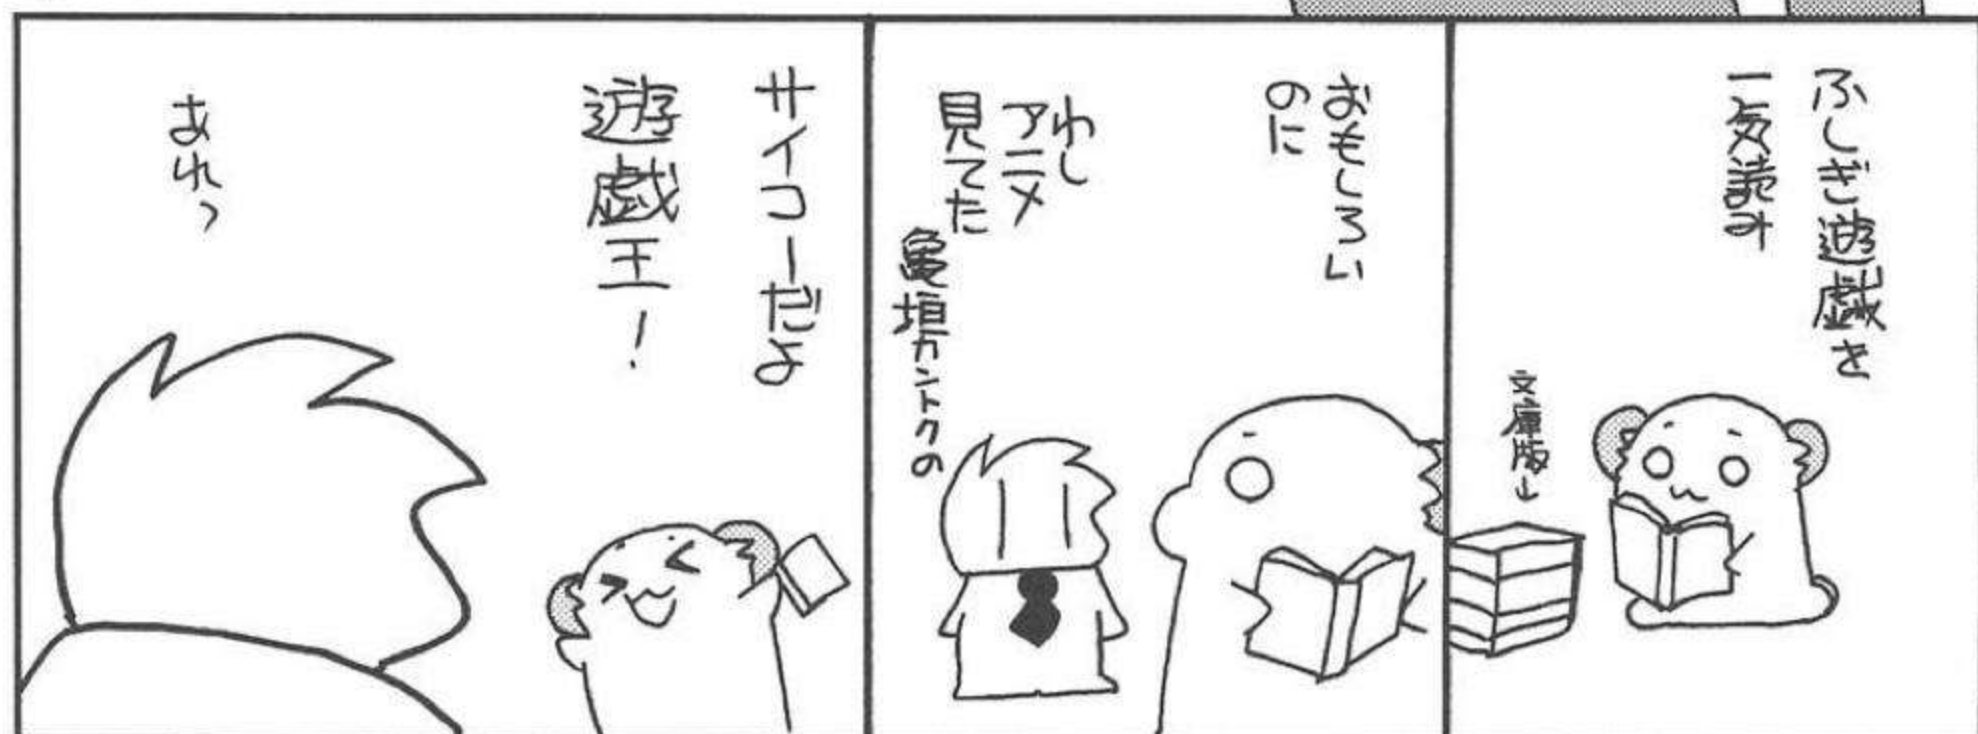 ふしぎ遊戯を
一気読み
文庫版↓
おもしろい
のに
わし
アニメ
見てた
亀垣カントクの
サイコーだよ
遊戯王!
あれっ